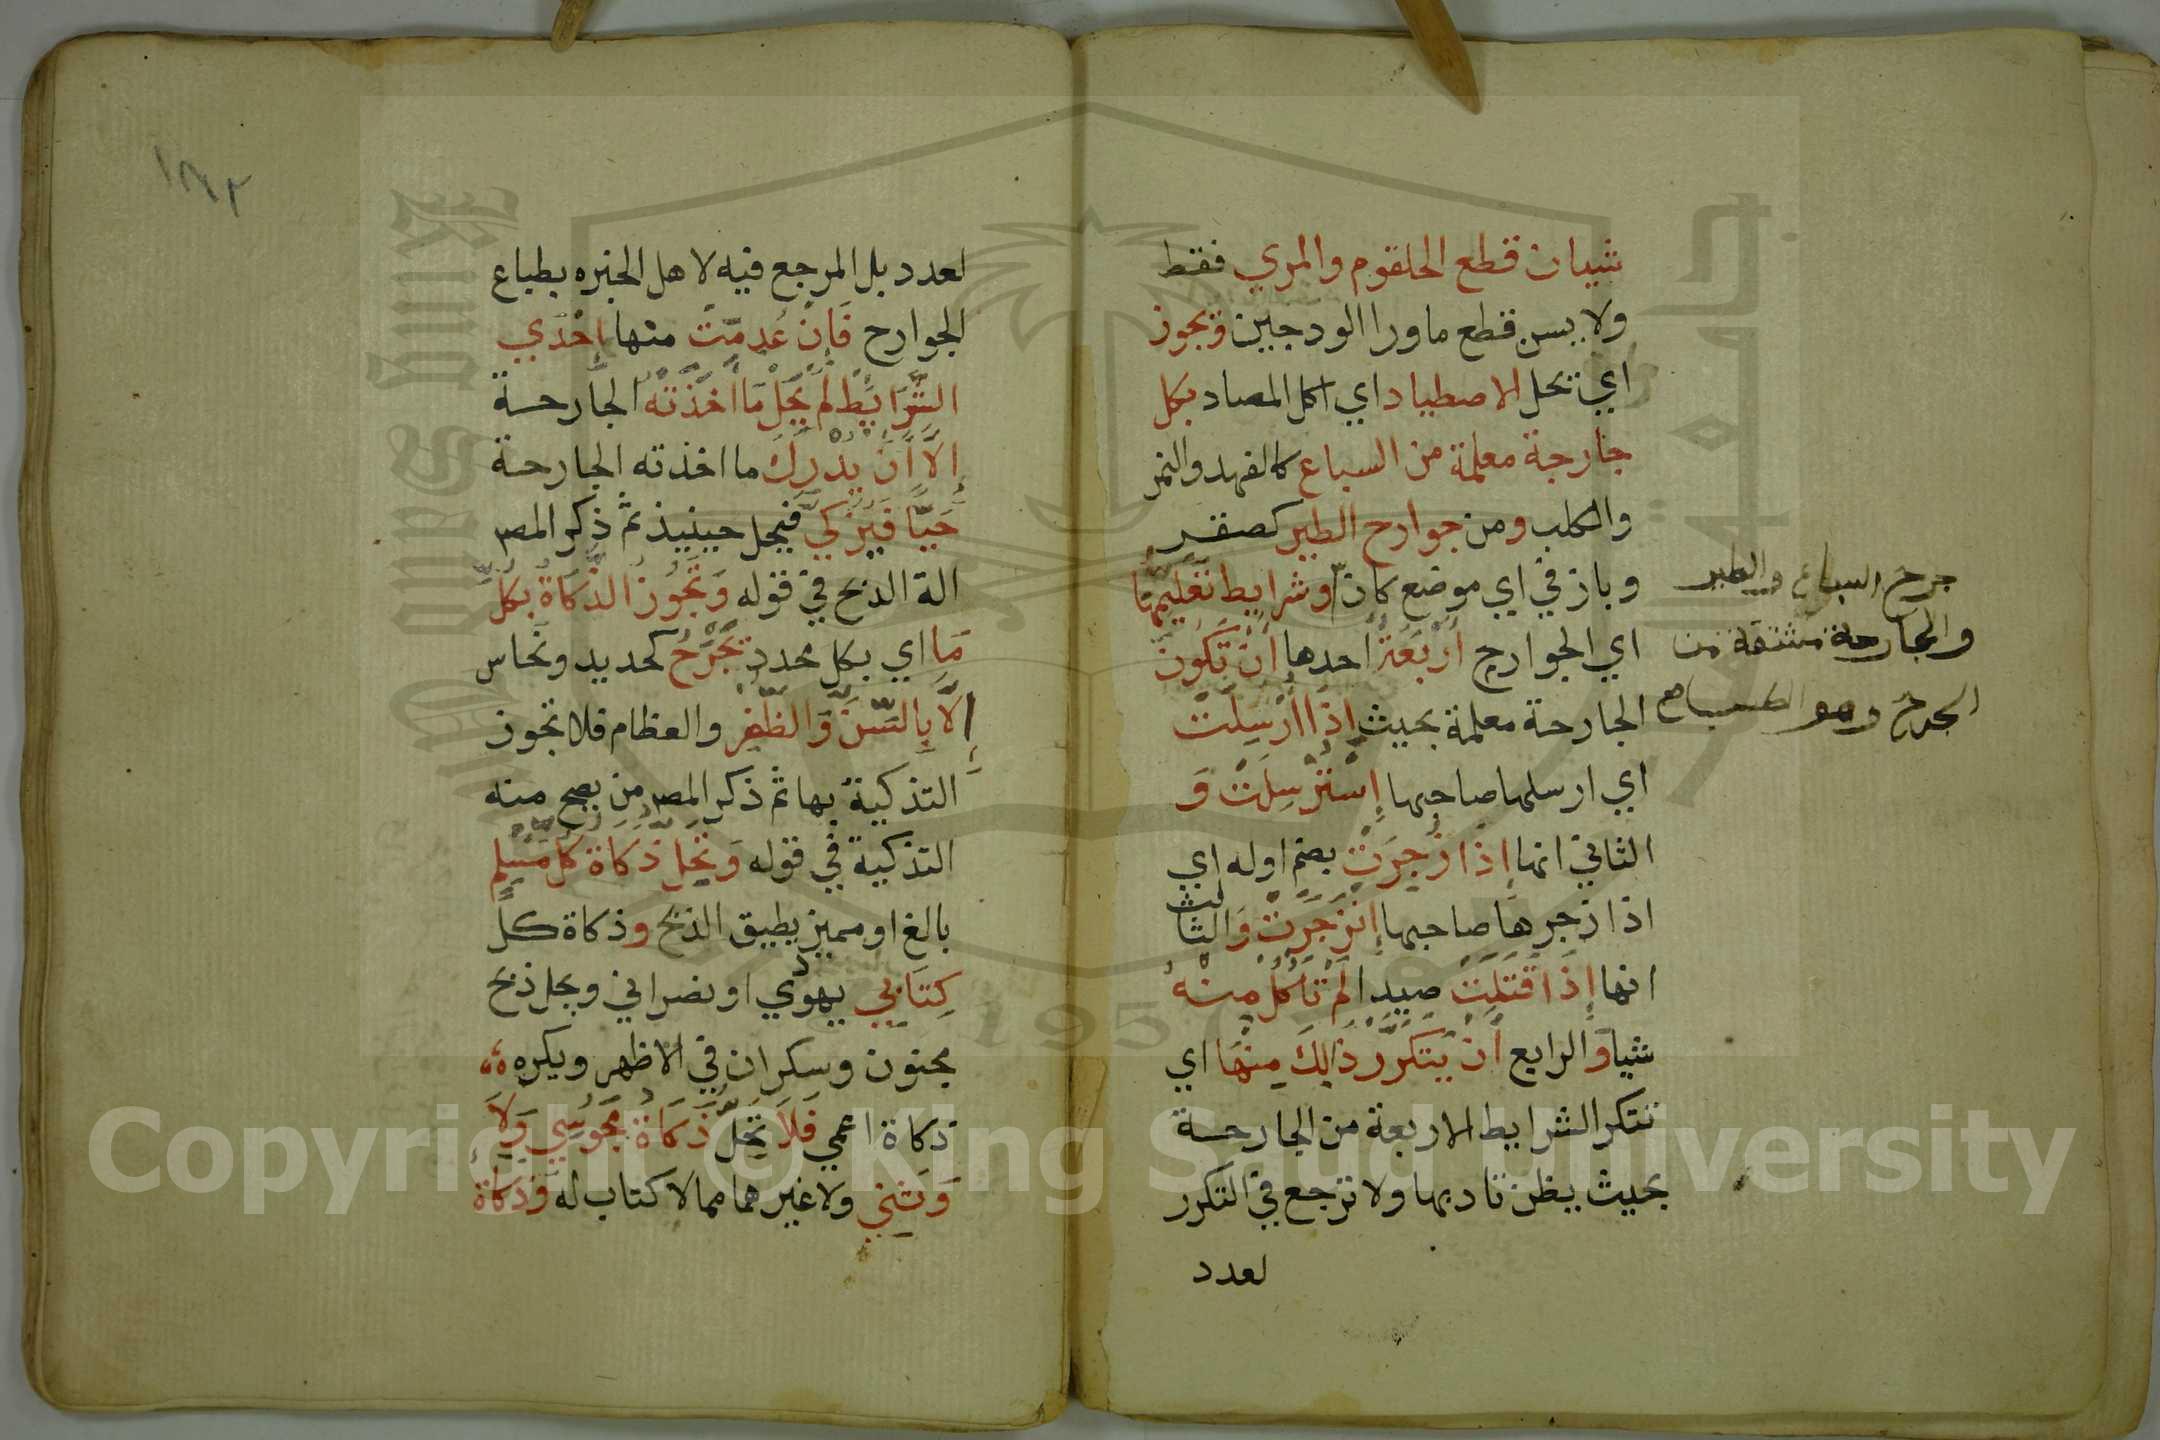 شيان قطع الحلقوم والمري فقط
ولا يسن قطع ما ورا الودجين ويجوز
اي تحل الاصطياد اي اكل المصاد بكل
جارحة معلمة من السباع كالفهد والنمر
والكلب ومن جوارح الطير كصقر
وباز في اي موضع كان وشرايط تعليمها
اي الجوارح أربعة احدها أن تكون
الجارحة معلمة بحيث إذا أرسلت
اي ارسلها صاحبها إسترسلت و
الثاني انها إذا زجرت بضم اوله اي
اذا زجرها صاحبها إنزجرت والثالث
انها إذا قتلت صيدا لم تاكل منه
شيا والرابع أن يتكرر ذلك منها اي
تتكر الشرايط الاربعة من الجارحة
بحيث يظن تاديبها ولا ترجع في التكرر
لعدد
جرح السباع والطير
والجارحة مشتقة من
الجرح وهو
١٨٢
لعدد بل المرجع فيه لاهل الخبره بطباع
الجوارح فَإنْ عُدِمَتْ منها إحْدَي
الشَّرَايِطِ لَمْ يَحِلَّ مَا أخَذَتْه الجارحة
إلاَّ أنْ يدْرَكَ ما اخذته الجارحة
حَيًّا فَيُزَكَّي فيحل حينيذ ثم ذكر المصـ
الة الذبح في قوله وَتَجُوزُ الذَّكَاةُ بِكُلِّ
مَا اي بكل محدد يَجْرَحُ كحديد ونحاس
إلاَّ بِالسِّنِّ وَالظُّفْرِ والعظام فلا تجوز
التذكية بها ثم ذكر المصـ من يصح منه
التذكية في قوله وَتَحِلُّ ذَكَاة كُلِّ مُسْلِمٍ
بالغ او مميز يطيق الذبح وذكاة كل
كِتَابِي يهودي او نصراني ويحل ذبح
مجنون وسكران في الاظهر ويكره
ذكاة اعمي فَلاَ تَحِلُّ ذَكَاةُ مَجُوسِي وَلاَ
وَثَنِي ولا غيرهما مما لا كتاب له وذكاة
Copyright © King Saud University
King Saud University
1957